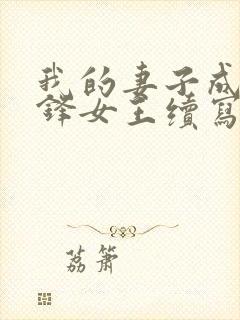 我的妻子成
鋒女王續寫
荔簫